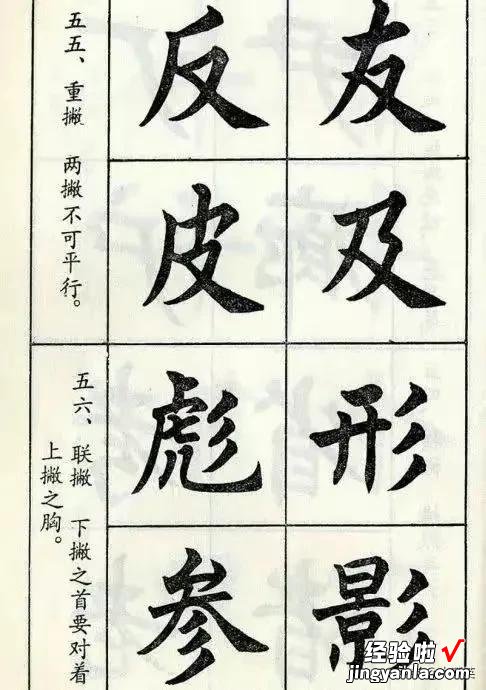 五五、重撇 两撇不可平行。
反 友
皮 及
五六、联撇 下撇之首要对着
上撇之胸。
彪 形
参 影
经验啦√
jingyanla.com